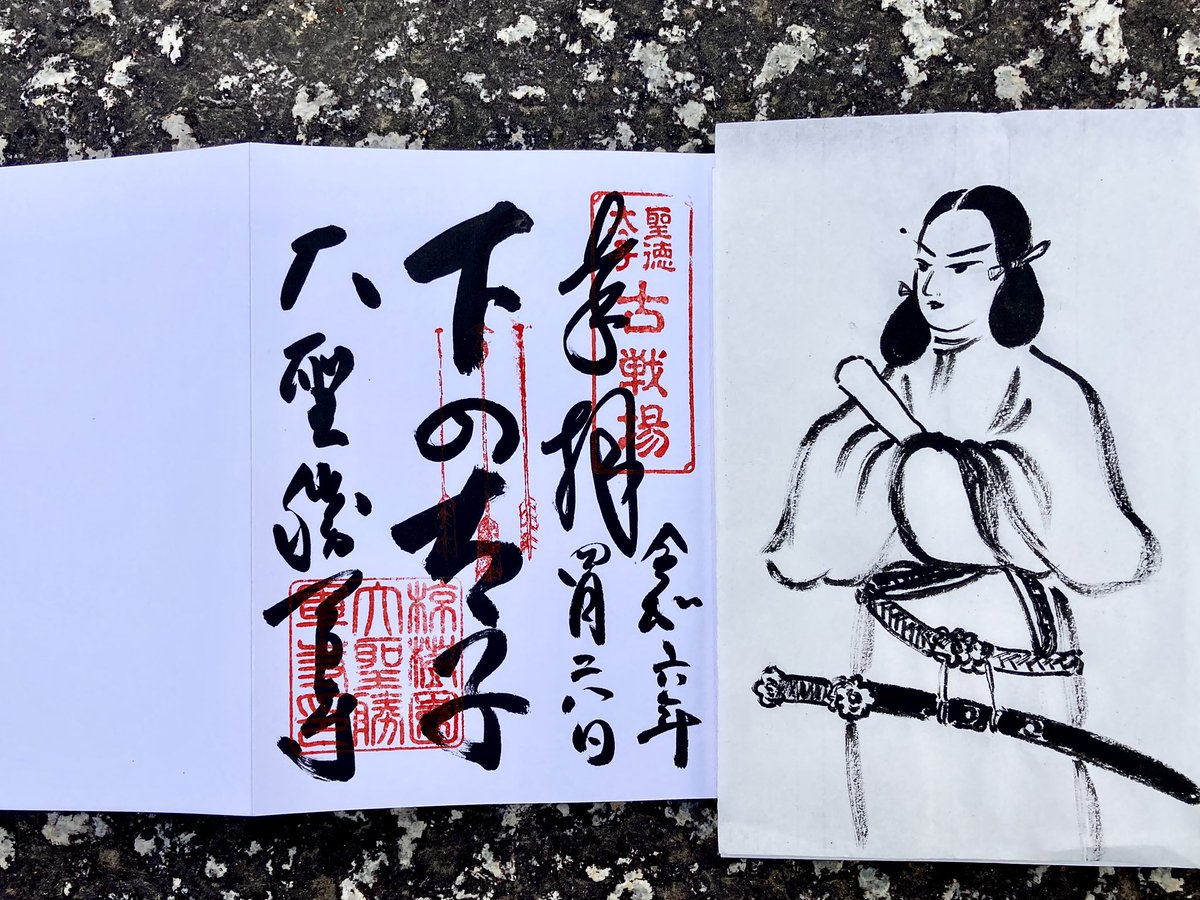 聖徳
太子
古戦場
奉拝
令和六年
四月二八日
下の太子
大聖勝軍寺
椋樹園
大聖勝
軍寺